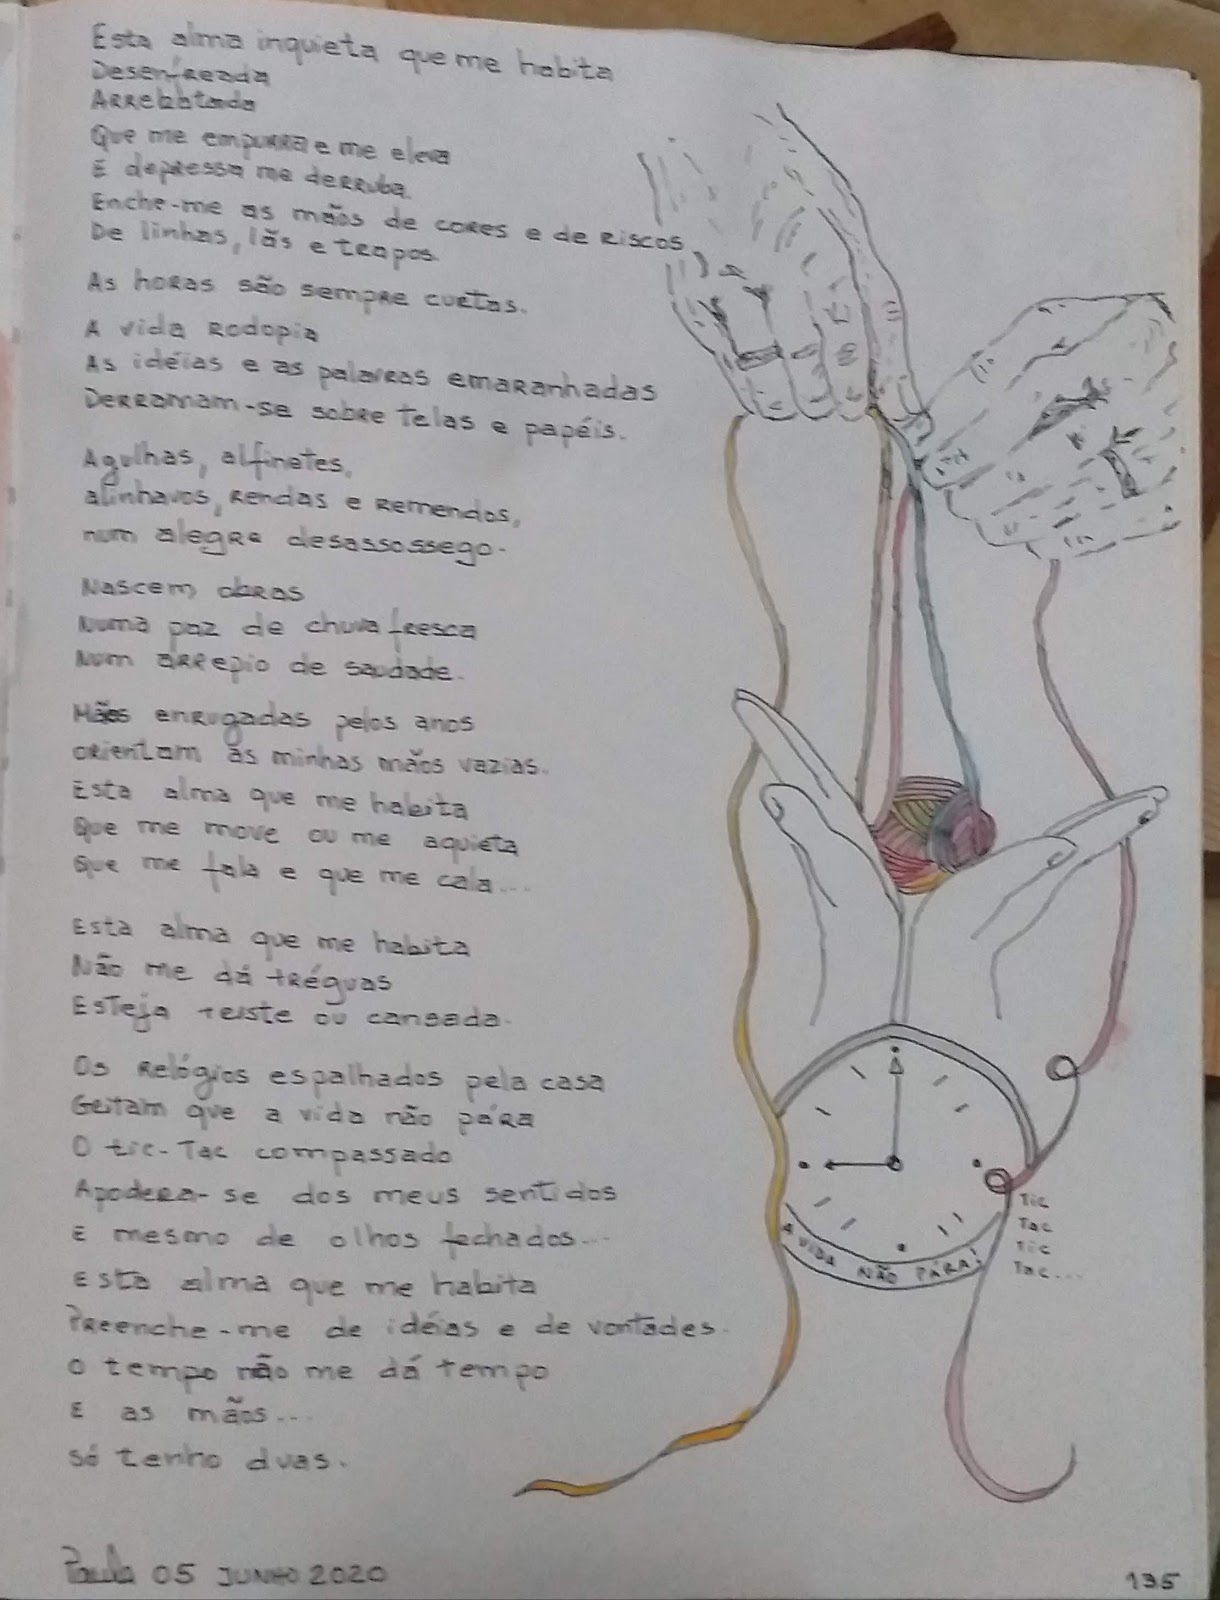 Esta alma inquieta que me habita
Desenfreada
Arrebatada
Que me empurra e me eleva
E depressa me derruba.
Enche-me as mãos de cores e de riscos
De linhas, lãs e trapos.
As horas são sempre curtas.
A vida rodopia
As idéias e as palavras emaranhadas
Derramam-se sobre telas e papéis.
Agulhas, alfinetes,
alinhavos, rendas e remendos,
num alegre desassossego.
Nascem obras
Numa paz de chuva fresca
Num arrepio de saudade.
Mãos enrugadas pelos anos
orientam as minhas mãos vazias.
Esta alma que me habita
Que me move ou me aquieta
Que me fala e que me cala...
Esta alma que me habita
Não me dá tréguas
Esteja triste ou cansada.
Os relógios espalhados pela casa
Gritam que a vida não pára
O tic-Tac compassado
Apodera-se dos meus sentidos
E mesmo de olhos fechados...
Esta alma que me habita
Preenche-me de idéias e de vontades.
O tempo não me dá tempo
E as mãos...
só tenho duas.
A VIDA NÃO PÁRA!
Tic
Tac
Tic
Tac...
Paula 05 JUNHO 2020
135